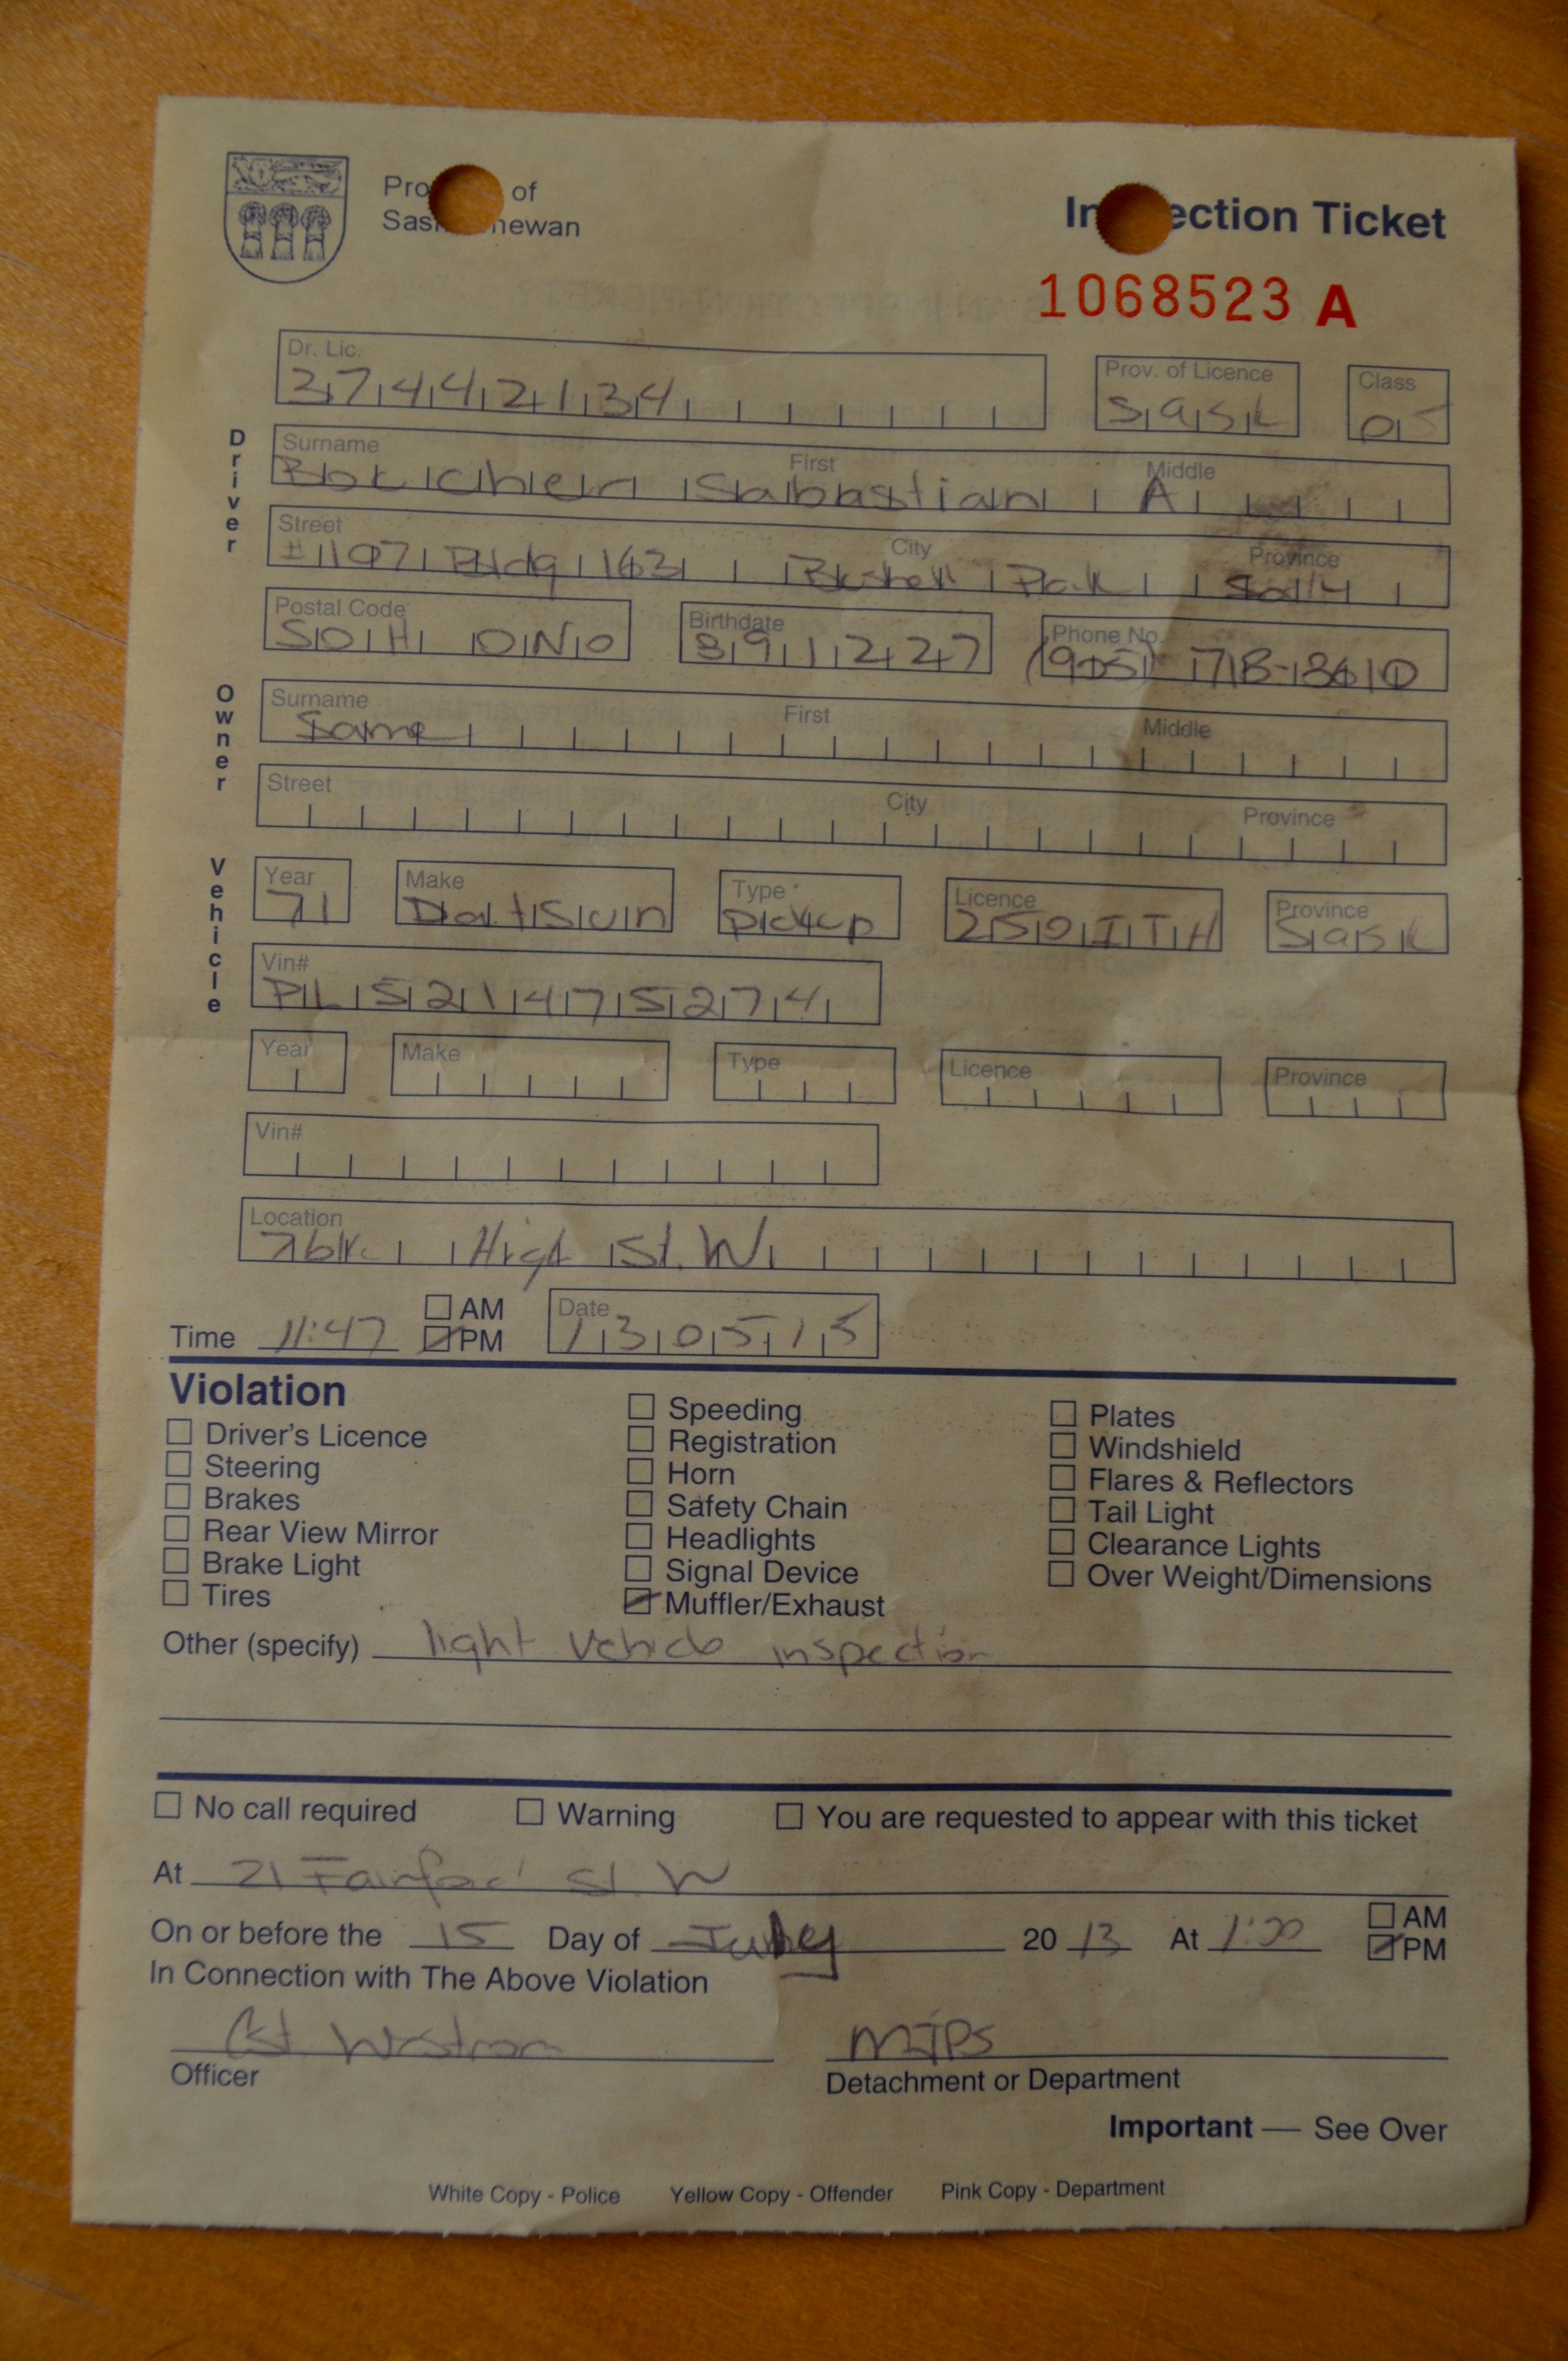 Pro of
Sas newan
In ection Ticket
1068523 A
Dr. Lic.
37442134
Prov. of Licence
Sask
Class
05
Driver
Surname First Middle
Sabastian A
Street City Province
#107 Bldg 163 Bushell Park
Postal Code
S0H 0N0
Birthdate
891227
Phone No.
(905)
Owner
Surname First Middle
Same
Street City Province
Vehicle
Year
71
Make
Datsun
Type
Pickup
Licence
250 ITH
Province
Sask
Vin#
PL521475274
Year
Make
Type
Licence
Province
Vin#
Location
7 blk. High St. W
Time 11:47 AM PM
Date
130515
Violation
Driver's Licence
Steering
Brakes
Rear View Mirror
Brake Light
Tires
Speeding
Registration
Horn
Safety Chain
Headlights
Signal Device
Muffler/Exhaust
Plates
Windshield
Flares & Reflectors
Tail Light
Clearance Lights
Over Weight/Dimensions
Other (specify) light vehicle inspection
No call required Warning You are requested to appear with this ticket
At 21 Fairford St. W
On or before the 15 Day of July 20 13 At 1:00 AM PM
In Connection with The Above Violation
Cst.
Officer
MJPS
Detachment or Department
Important — See Over
White Copy - Police Yellow Copy - Offender Pink Copy - Department